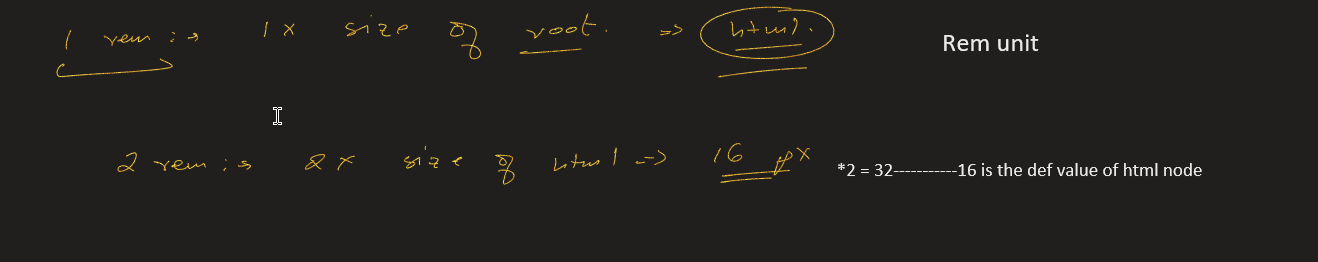 1 rem :→ 1x size of root. => html.
Rem unit
2 rem :→ 2x size of html → 16 px *2 = 32-----------16 is the def value of html node